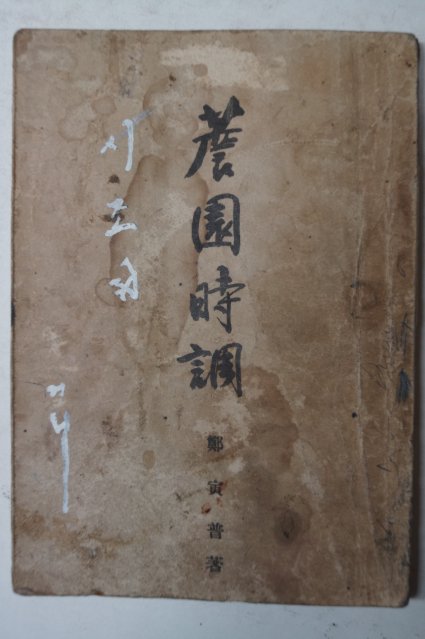 薝園時調
鄭寅普著
시조집